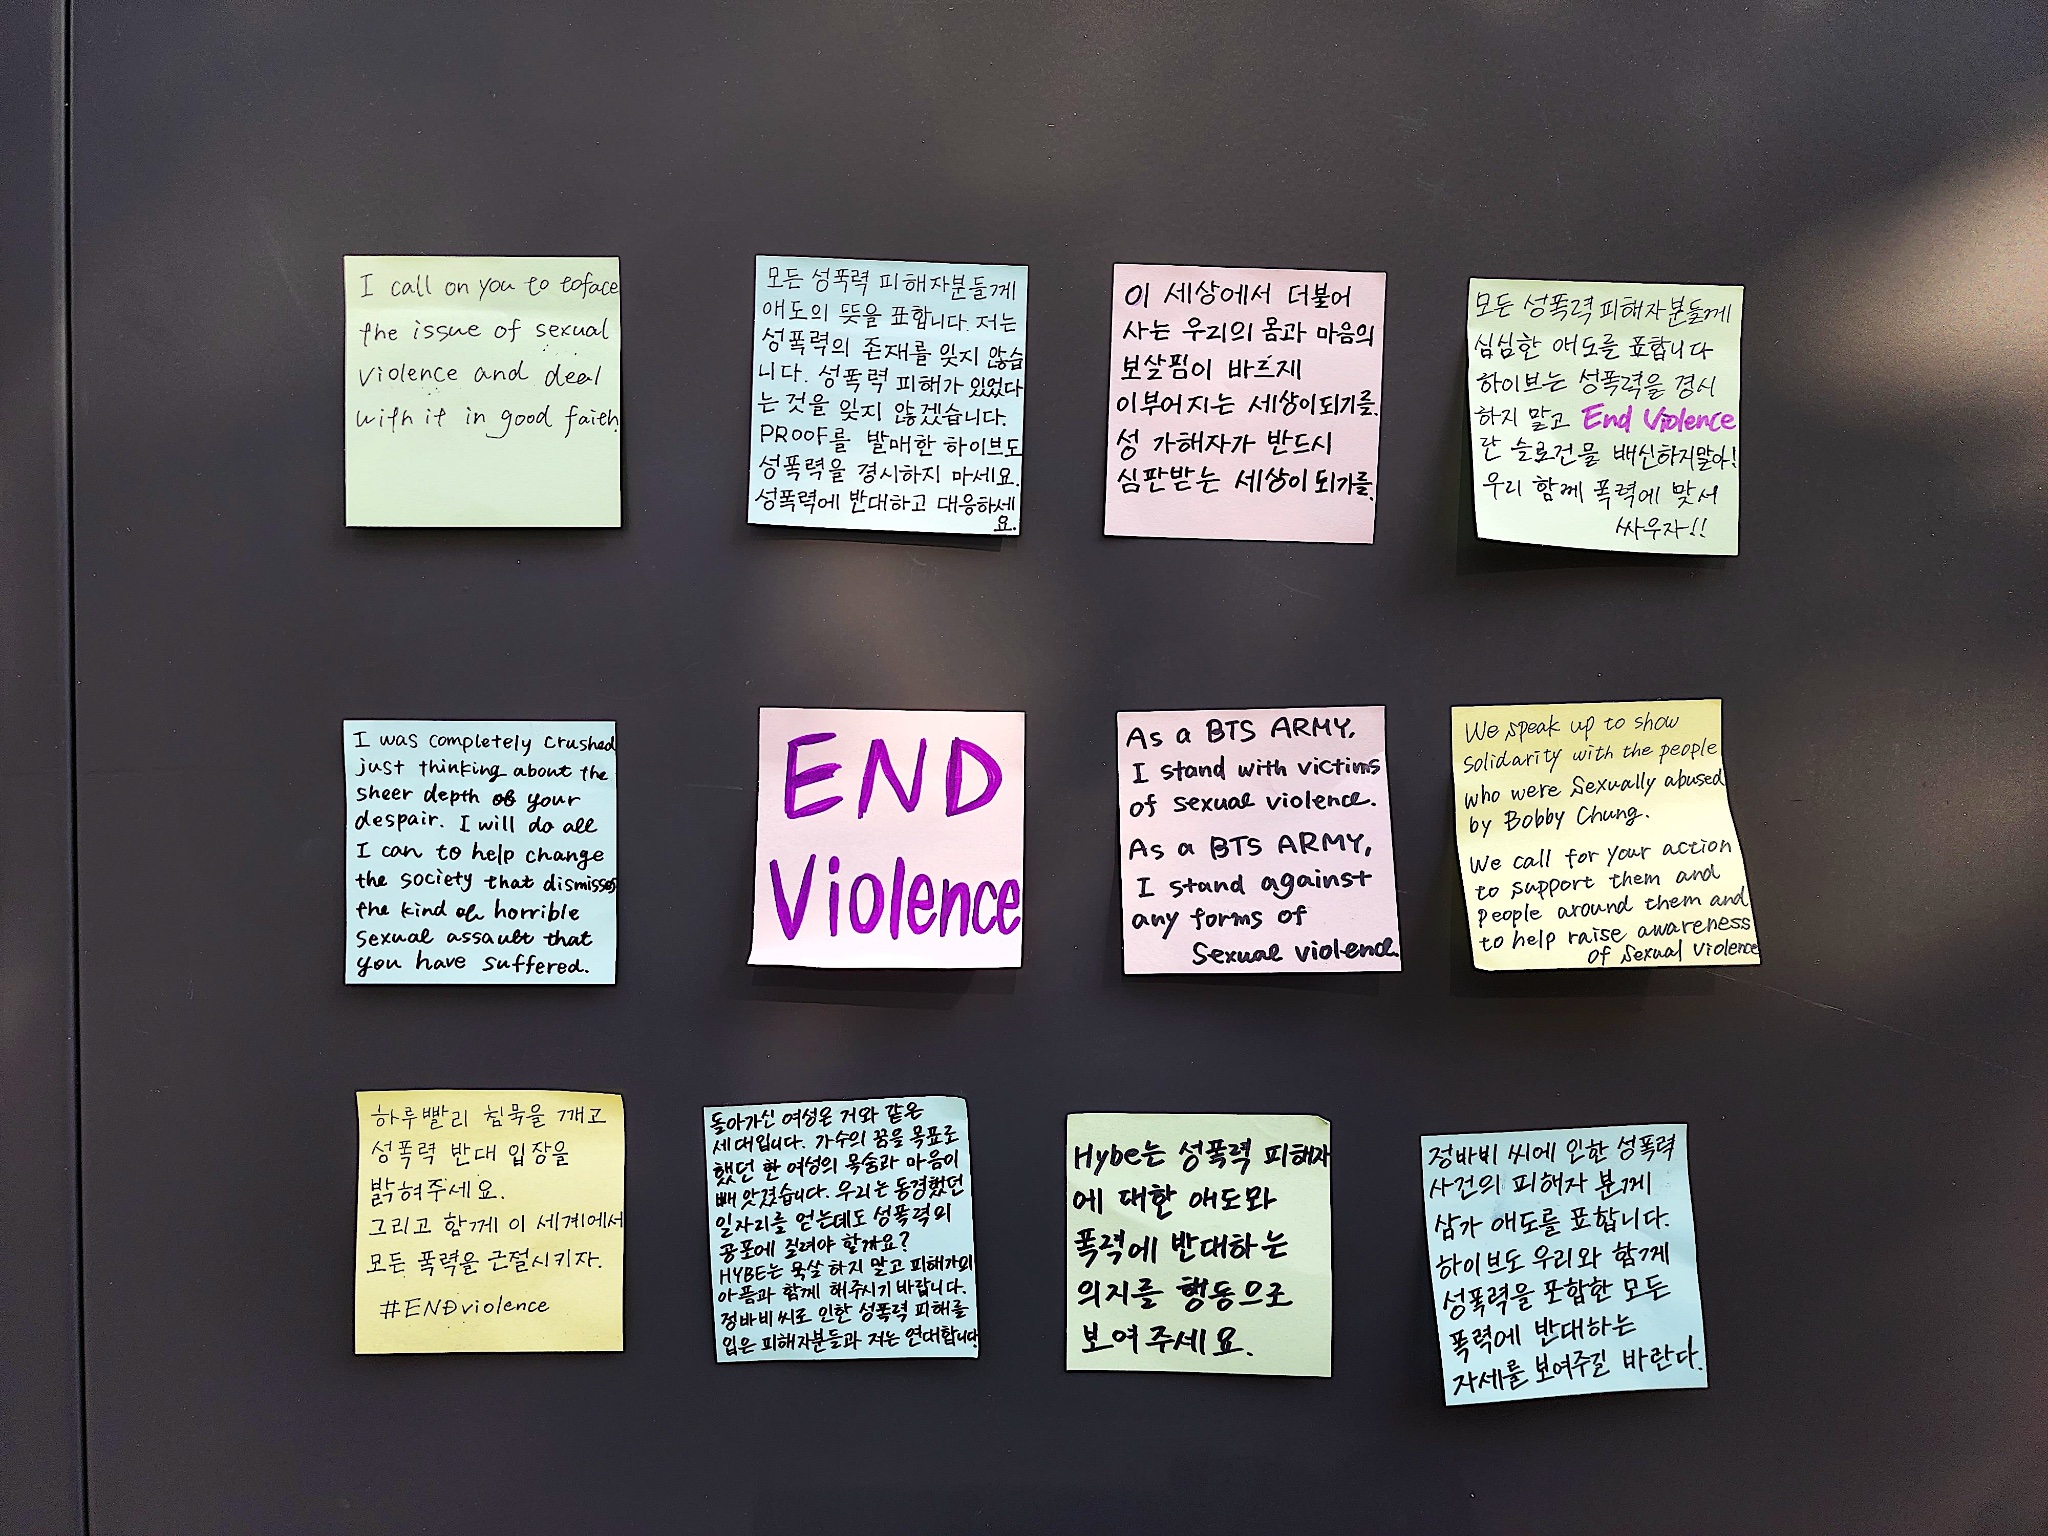 I call on you to toface
the issue of sexual
violence and deal
with it in good faith.
모든 성폭력 피해자분들께
애도의 뜻을 표합니다. 저는
성폭력의 존재를 잊지 않습
니다. 성폭력 피해가 있었다
는 것을 잊지 않겠습니다.
PROOF를 발매한 하이브도
성폭력을 경시하지 마세요.
성폭력에 반대하고 대응하세
요.
이 세상에서 더불어
사는 우리의 몸과 마음의
보살핌이 바르제
이부어지는 세상이되기를.
성 가해자가 반드시
심판받는 세상이되기를.
모든 성폭력 피해자분들께
심심한 애도를 표합니다
하이브는 성폭력을 경시
하지 말고 End Violence
란 슬로건을 배신하지말아!
우리 함께 폭력에 맞서
싸우자!!
I was completely crushed
just thinking about the
sheer depth of your
despair. I will do all
I can to help change
the society that dismisses
the kind of horrible
sexual assault that
you have suffered.
END
Violence
As a BTS ARMY,
I stand with victims
of sexual violence.
As a BTS ARMY,
I stand against
any forms of
Sexual violence.
We speak up to show
solidarity with the people
who were Sexually abused
by Bobby Chung.
We call for your action
to support them and
people around them and
to help raise awareness
of Sexual Violence
하루빨리 침묵을 깨고
성폭력 반대 입장을
밝혀주세요.
그리고 함께 이 세계에서
모든 폭력을 근절시키자.
#ENDviolence
돌아가신 여성은 저와 같은
세대입니다. 가수의 꿈을 목표로
했던 한 여성의 목숨과 마음이
빼앗겼습니다. 우리는 동경했던
일자리를 얻는데도 성폭력의
공포에 질려야 할까요?
HYBE는 묵살 하지 말고 피해자의
아픔과 함께 해주시기 바랍니다.
정바비 씨로 인한 성폭력 피해를
입은 피해자분들과 저는 연대합니다
Hybe는 성폭력 피해자
에 대한 애도와
폭력에 반대하는
의지를 행동으로
보여주세요.
정바비 씨에 인한 성폭력
사건의 피해자 분께
삼가 애도를 표합니다.
하이브도 우리와 함께
성폭력을 포함한 모든
폭력에 반대하는
자세를 보여주길 바란다.